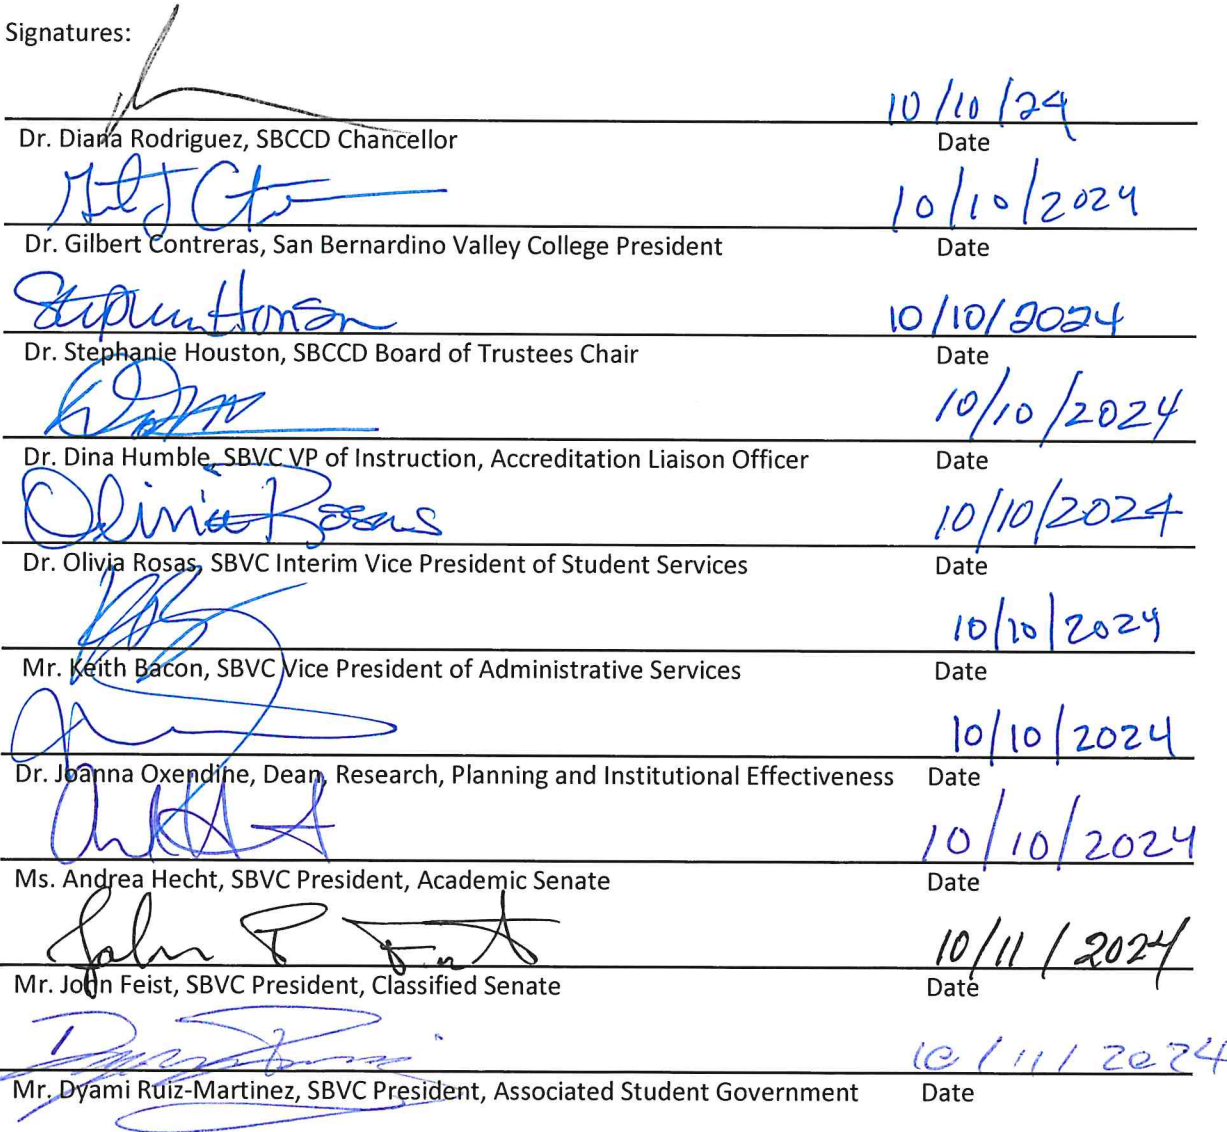 Signatures:
10/10/24
Dr. Diana Rodriguez, SBCCD Chancellor Date
10/10/2024
Dr. Gilbert Contreras, San Bernardino Valley College President Date
10/10/2024
Dr. Stephanie Houston, SBCCD Board of Trustees Chair Date
10/10/2024
Dr. Dina Humble, SBVC VP of Instruction, Accreditation Liaison Officer Date
Olivia Rosas 10/10/2024
Dr. Olivia Rosas, SBVC Interim Vice President of Student Services Date
10/10/2024
Mr. Keith Bacon, SBVC Vice President of Administrative Services Date
10/10/2024
Dr. Joanna Oxendine, Dean, Research, Planning and Institutional Effectiveness Date
10/10/2024
Ms. Andrea Hecht, SBVC President, Academic Senate Date
John P 10/11/2024
Mr. John Feist, SBVC President, Classified Senate Date
10/11/2024
Mr. Dyami Ruiz-Martinez, SBVC President, Associated Student Government Date